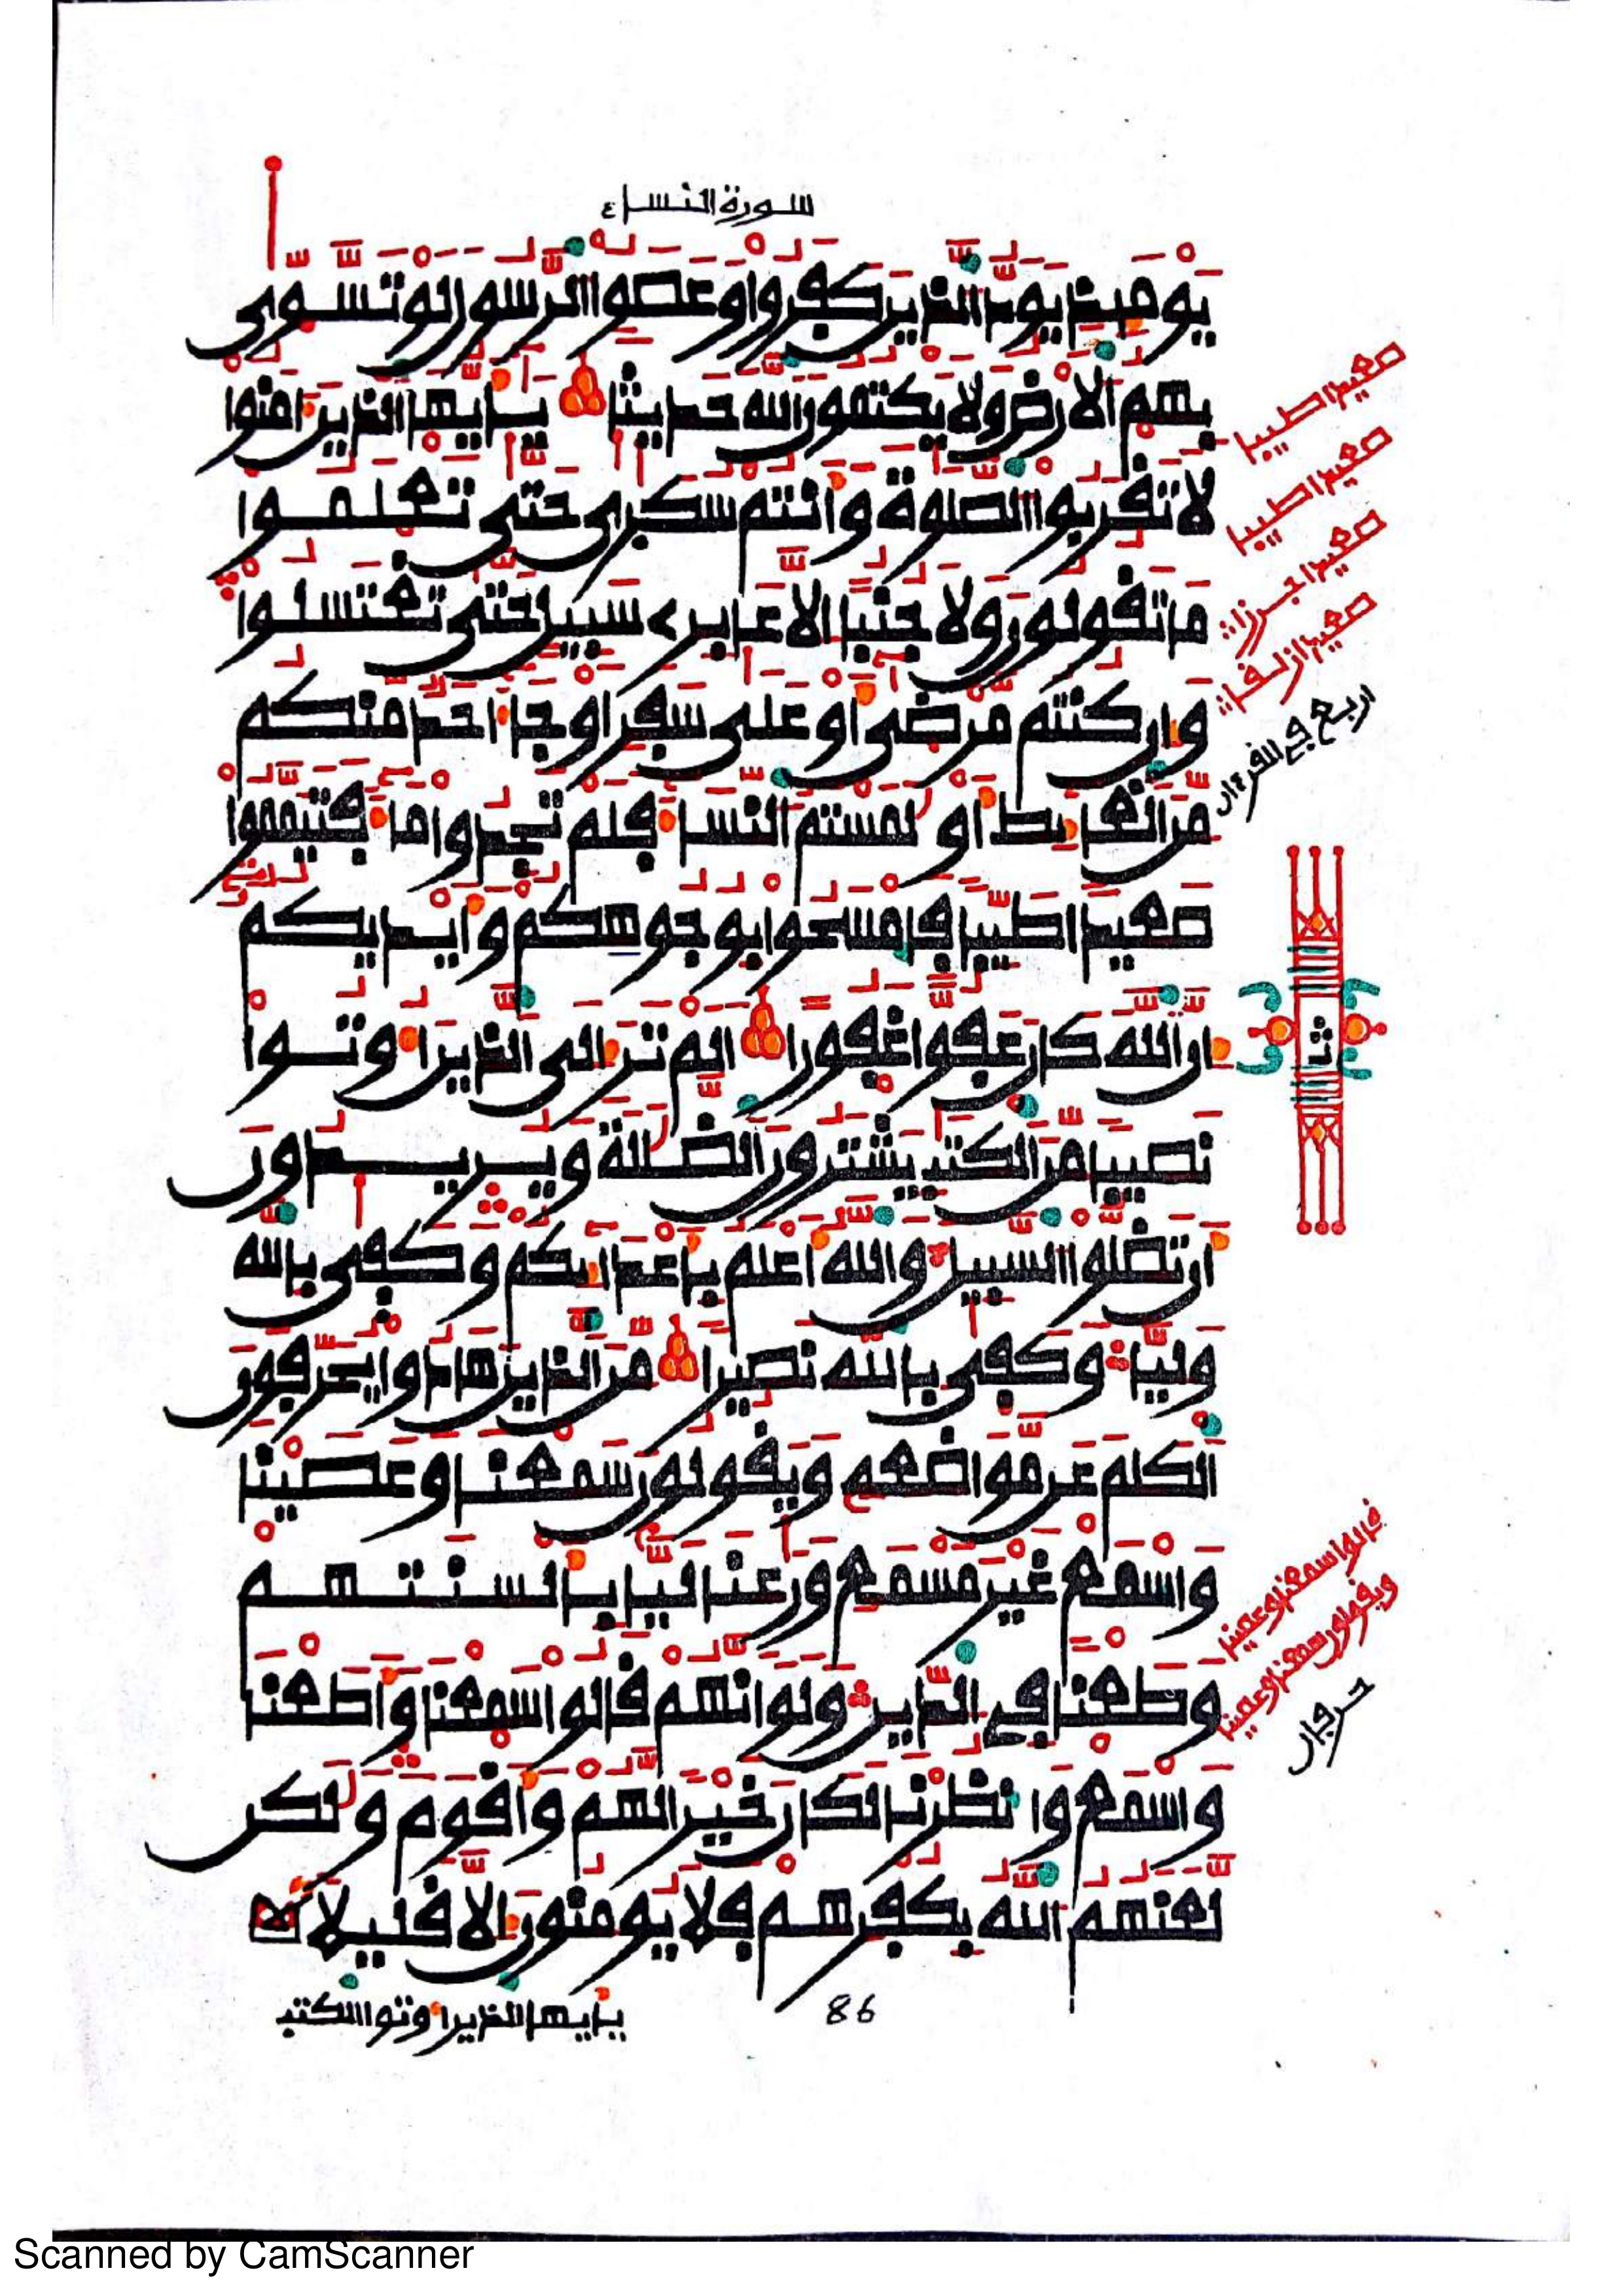 سورة النساء
يومئذ يود الذين كفروا وعصوا الرسول لو تسوى
بهم الارض ولا يكتمون الله حديثا يايها الذين امنوا
لا تقربوا الصلوة وانتم سكرى حتى تعلموا
ما تقولون ولا جنبا الا عابرے سبيل حتى تغتسلوا
وان كنتم مرضى او على سفر او جا احد منكم
من الغايط او لمستم النسا فلم تجدوا ما فتيمموا
صعيدا طيبا فامسحوا بوجوهكم وايديكم
ان الله كان عفوا غفورا الم تر الى الذين اوتوا
نصيبا من الكتب يشترون الضللة ويريدون
ان تضلوا السبيل والله اعلم باعدايكم وكفى بالله
وليا وكفى بالله نصيرا من الذين هادوا يحرفون
الكلم عن مواضعه ويقولون سمعنا وعصينا
واسمع غير مسمع ورعنا ليا بالسنتهم
وطعنا في الدين ولو انهم قالوا سمعنا واطعنا
واسمع وانظرنا لكان خيرا لهم واقوم ولكن
لعنهم الله بكفرهم فلا يومنون الا قليلا
يايها الذين اوتوا الكتب
86
صعيدا طيبا
صعيدا طيبا
صعيدا جرزا
صعيدا زلقا
اربع في القرءان
ثمن
قالوا سمعنا وعصينا
ويقولون سمعنا وعصينا
حرفان
Scanned by CamScanner